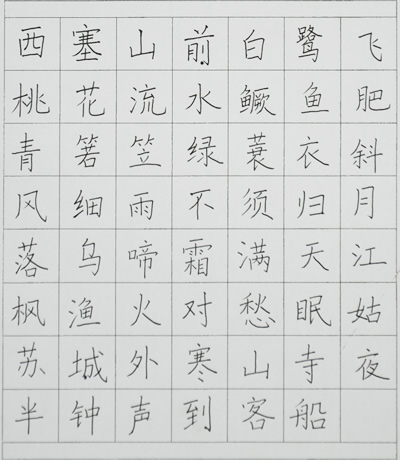 西塞山前白鹭飞
桃花流水鳜鱼肥
青箬笠绿蓑衣斜
风细雨不须归月
落乌啼霜满天江
枫渔火对愁眠姑
苏城外寒山寺夜
半钟声到客船